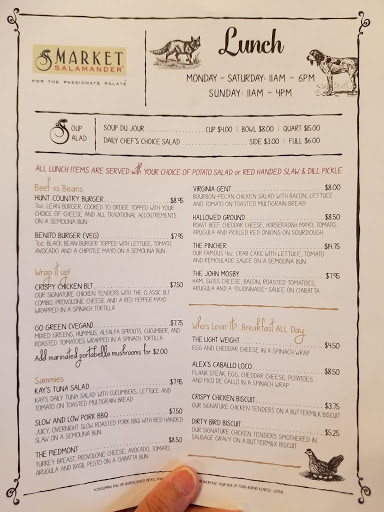 MARKET
SALAMANDER
FOR THE PASSIONATE PALATE
Lunch
MONDAY - SATURDAY: 11AM - 6PM
SUNDAY: 11AM - 4PM
SOUP
SALAD
SOUP DU JOUR CUP $4.00 | BOWL $8.00 | QUART $15.00
DAILY CHEF'S CHOICE SALAD SIDE $3.00 | FULL $6.00
ALL LUNCH ITEMS ARE SERVED with YOUR CHOICE OF POTATO SALAD or RED HANDED SLAW & DILL PICKLE
Beef vs Beans
HUNT COUNTRY BURGER $8.95
7oz. LEAN BURGER, COOKED TO ORDER, TOPPED WITH YOUR
CHOICE OF CHEESE, AND ALL TRADITIONAL ACCOUTREMENTS
ON A SEMOLINA BUN
BENITO BURGER (VEG) $7.95
7oz. BLACK BEAN BURGER TOPPED WITH LETTUCE, TOMATO,
AVOCADO AND A CHIPOTLE MAYO ON A SEMOLINA BUN
Wrap it up!
CRISPY CHICKEN BLT $7.50
OUR SIGNATURE CHICKEN TENDERS WITH THE CLASSIC BLT
COMBO, PROVOLONE CHEESE AND A RED PEPPER MAYO
WRAPPED IN A SPINACH TORTILLA
GO GREEN (VEGAN) $7.75
MIXED GREENS, HUMMUS, ALFALFA SPROUTS, CUCUMBER, AND
ROASTED TOMATOES WRAPPED IN A SPINACH TORTILLA
Add marinated portabella mushrooms for $2.00
Sammies
KAY'S TUNA SALAD $7.95
KAY'S DAILY TUNA SALAD WITH CUCUMBERS, LETTUCE AND
TOMATO ON TOASTED MULTIGRAIN BREAD
SLOW AND LOW PORK BBQ $7.50
JUICY, OVERNIGHT SLOW ROASTED PORK BBQ WITH RED HANDED
SLAW ON A SEMOLINA BUN
THE PIEDMONT $8.50
TURKEY BREAST, PROVOLONE CHEESE, AVOCADO, TOMATO,
ARUGULA AND BASIL PESTO ON A CIABATTA BUN
VIRGINIA GENT $8.00
BOURBON-PECAN CHICKEN SALAD WITH BACON, LETTUCE
AND TOMATO ON TOASTED MULTIGRAIN BREAD
HALLOWED GROUND $8.50
ROAST BEEF, CHEDDAR CHEESE, HORSERADISH MAYO, TOMATO,
ARUGULA AND PICKLED RED ONIONS ON SOURDOUGH
THE PINCHER $14.75
OUR FAMOUS 4oz. CRAB CAKE WITH LETTUCE, TOMATO
AND REMOULADE SAUCE ON A SEMOLINA BUN
THE JOHN MOSBY $7.95
HAM, SWISS CHEESE, BACON, ROASTED TOMATOES,
ARUGULA AND A "DIJONNAISE" SAUCE ON CIABATTA
Who's Lovin It? Breakfast ALL Day
THE LIGHT WEIGHT $4.50
EGG AND CHEDDAR CHEESE IN A SPINACH WRAP
ALEX'S CABALLO LOCO $8.50
FLANK STEAK, EGG, CHEDDAR CHEESE, POTATOES
AND PICO DE GALLO IN A SPINACH WRAP
CRISPY CHICKEN BISCUIT $3.75
OUR SIGNATURE CHICKEN TENDERS ON A BUTTERMILK BISCUIT
DIRTY BIRD BISCUIT $5.25
OUR SIGNATURE CHICKEN TENDERS SMOTHERED IN
SAUSAGE GRAVY ON A BUTTERMILK BISCUIT